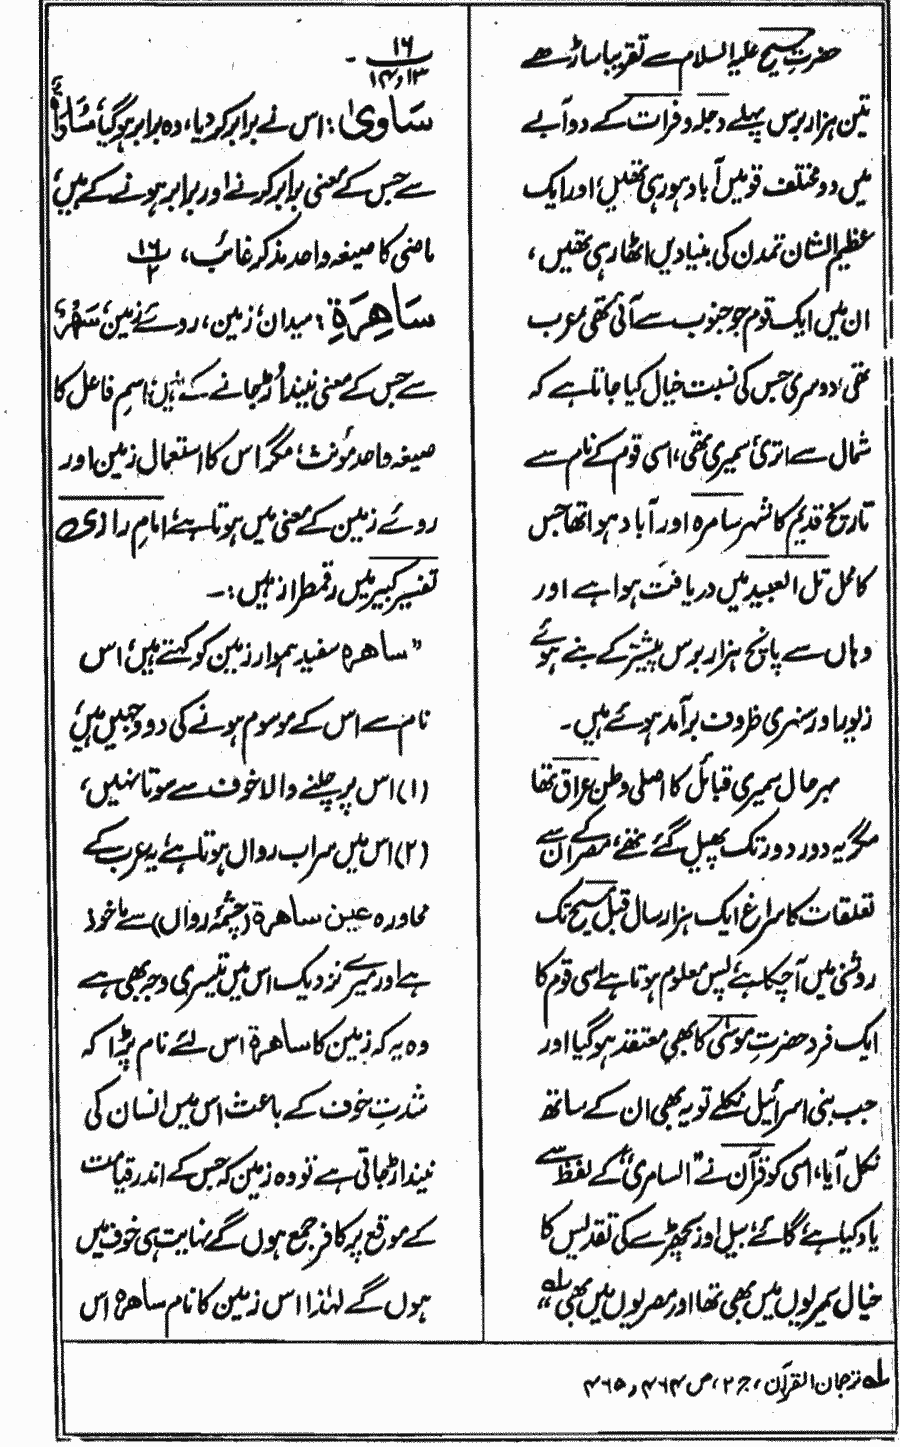 حضرتِ مسیح علیہ السلام سے تقریباً ساڑھے
تین ہزار برس پہلے دجلہ و فرات کے دو آبے
میں دو مختلف قومیں آباد ہو رہی تھیں، اور ایک
عظیم الشان تمدن کی بنیادیں اٹھا رہی تھیں،
ان میں ایک قوم جو جنوب سے آئی تھی عرب
تھی، دوسری جس کی نسبت خیال کیا جاتا ہے کہ
شمال سے اتری، سمیری تھی، اسی قوم کے نام سے
تاریخ قدیم کا شہر سامرہ اور آباد ہوا تھا جس
کا محل تل العبید میں دریافت ہوا ہے اور
وہاں سے پانچ ہزار برس پیشتر کے بنے ہوئے
زیور اور سنہری ظروف برآمد ہوئے ہیں۔
بہر حال سمیری قبائل کا اصلی وطن عراق تھا
مگر یہ دور دور تک پھیل گئے تھے، مصر ان کے
تعلقات کا سراغ ایک ہزار سال قبل مسیح تک
روشنی میں آچکا ہے، پس معلوم ہوتا ہے اسی قوم کا
ایک فرد حضرتِ موسٰی کا بھی معتقد ہوگیا اور
جب بنی اسرائیل نکلے تو یہ بھی ان کے ساتھ
نکل آیا، اسی کو قرآن نے "السامری" کے لفظ سے
یاد کیا ہے، گائے، بیل اور بچھڑے کی تقدیس کا
خیال سمیریوں میں بھی تھا اور مصریوں میں بھی؂لہ
۱۶
۱۳ و ۱۴ ۔
سَاوٰی: اس نے برابر کر دیا، وہ برابر ہوگیا، مُسَاوَاۃٌ
سے جس کے معنی برابر کرنے اور برابر ہونے کے ہیں،
ماضی کا صیغہ واحد مذکر غائب، پ ۱۶/۲
سَاهِرَةِ: میدان، زمین، روئے زمین، سَهَرٌ
سے جس کے معنی نیند اُڑ جانے کے ہیں، اسم فاعل کا
صیغہ واحد مؤنث، مگر اس کا استعمال زمین اور
روئے زمین کے معنی میں ہوتا ہے، امامِ رازی
تفسیر کبیر میں رقمطراز ہیں:۔
"ساھرہ سفید ہموار زمین کو کہتے ہیں، اس
نام سے اس کے موسوم ہونے کی دو وجہیں ہیں،
(۱) اس پر چلنے والا خوف سے سوتا نہیں،
(۲) اس میں سراب رواں ہوتا ہے، یہ عرب کے
محاورہ عین ساھرة (چشمۂ رواں) سے ماخوذ
ہے اور میرے نزدیک اس میں تیسری وجہ بھی ہے
وہ یہ کہ زمین کا ساھرة اس لئے نام پڑا کہ
شدتِ خوف کے باعث اس میں انسان کی
نیند اڑ جاتی ہے تو وہ زمین کہ جس کے اندر قیامت
کے موقع پر کافر جمع ہوں گے نہایت ہی خوف میں
ہوں گے لہٰذا اس زمین کا نام ساھرہ اس
لہ ترجمان القرآن، ج ۲، ص ۴۶۴ و ۴۶۵